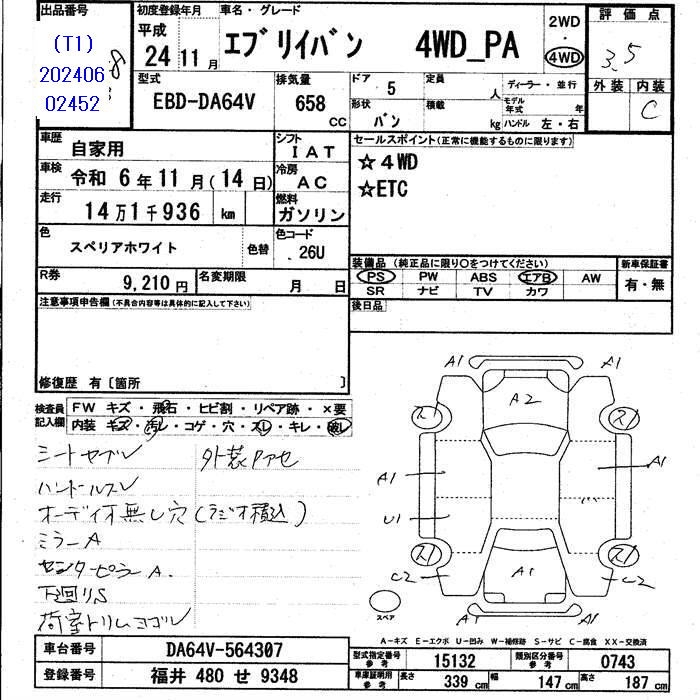 出品番号
(T1)
202406
02452
初度登録年月
平成
24 11月
車名・グレード
エブリイバン 4WD_PA
2WD
・
4WD
評価点
3.5
外装 内装
C
型式
EBD-DA64V
排気量
658
CC
ドア
5
定員
人
ディーラー・並行
モデル年式
年
形状
バン
積載
kg
ハンドル 左・右
車歴
自家用
シフト
IAT
車検
令和 6年11月(14日)
冷房
AC
走行
14万1千936 km
燃料
ガソリン
色
スペリアホワイト
色替
色コード
26U
R券
9,210円
名変期限
月 日
セールスポイント(正常に機能するものに限ります)
☆4WD
☆ETC
装備品(純正品に限り○をつけてください)
PS PW ABS エアB AW
SR ナビ TV カワ
新車保証書
有・無
後日品
注意事項申告欄(不具合内容等は具体的に記入して下さい)
修復歴 有〔箇所 〕
検査員記入欄
FW キズ・飛石・ヒビ割・リペア跡・×要
内装 キズ・汚レ・コゲ・穴・スレ・キレ・破レ
ハンドルスレ
オーディオ無し穴(ラジオ積込)
ミラーA
センターピラーA.
下回りS
荷室トリムヨゴレ
A1 A1
A2
スリ スリ
A1 A1
U1
スリ スリ
A1
C2 C2
A1 A1
スペア
A-キズ E-エクボ U-凹み W-補修跡 S-サビ C-腐食 XX-交換済
車台番号
DA64V-564307
登録番号
福井 480 せ 9348
型式指定番号
参考
15132
類別区分番号
参考
0743
車庫証明用
参考
長さ
339 cm
幅
147 cm
高さ
187 cm